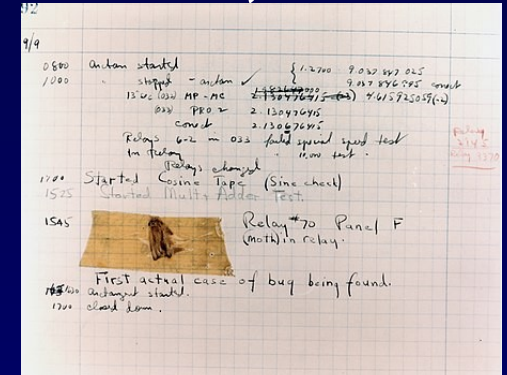 92
9/9
0800 antan started { 1.2700 9.037 847 025
1000 " stopped - antan ✓ 9.037 846 995 conect
13"uc (032) MP - MC 2.130476415 4.615925059(-2)
(033) PRO 2 2.130476415
conect 2.130676415
Relays 6-2 in 033 failed special speed test
In Relay " 10,000 test .
Relays changed
Relay
3370
1700 Started Cosine Tape (Sine check)
1525 Started Mult + Adder Test.
1545 Relay #70 Panel F
(Moth) in relay.
First actual case of bug being found.
1630 antangent started.
1700 closed down.